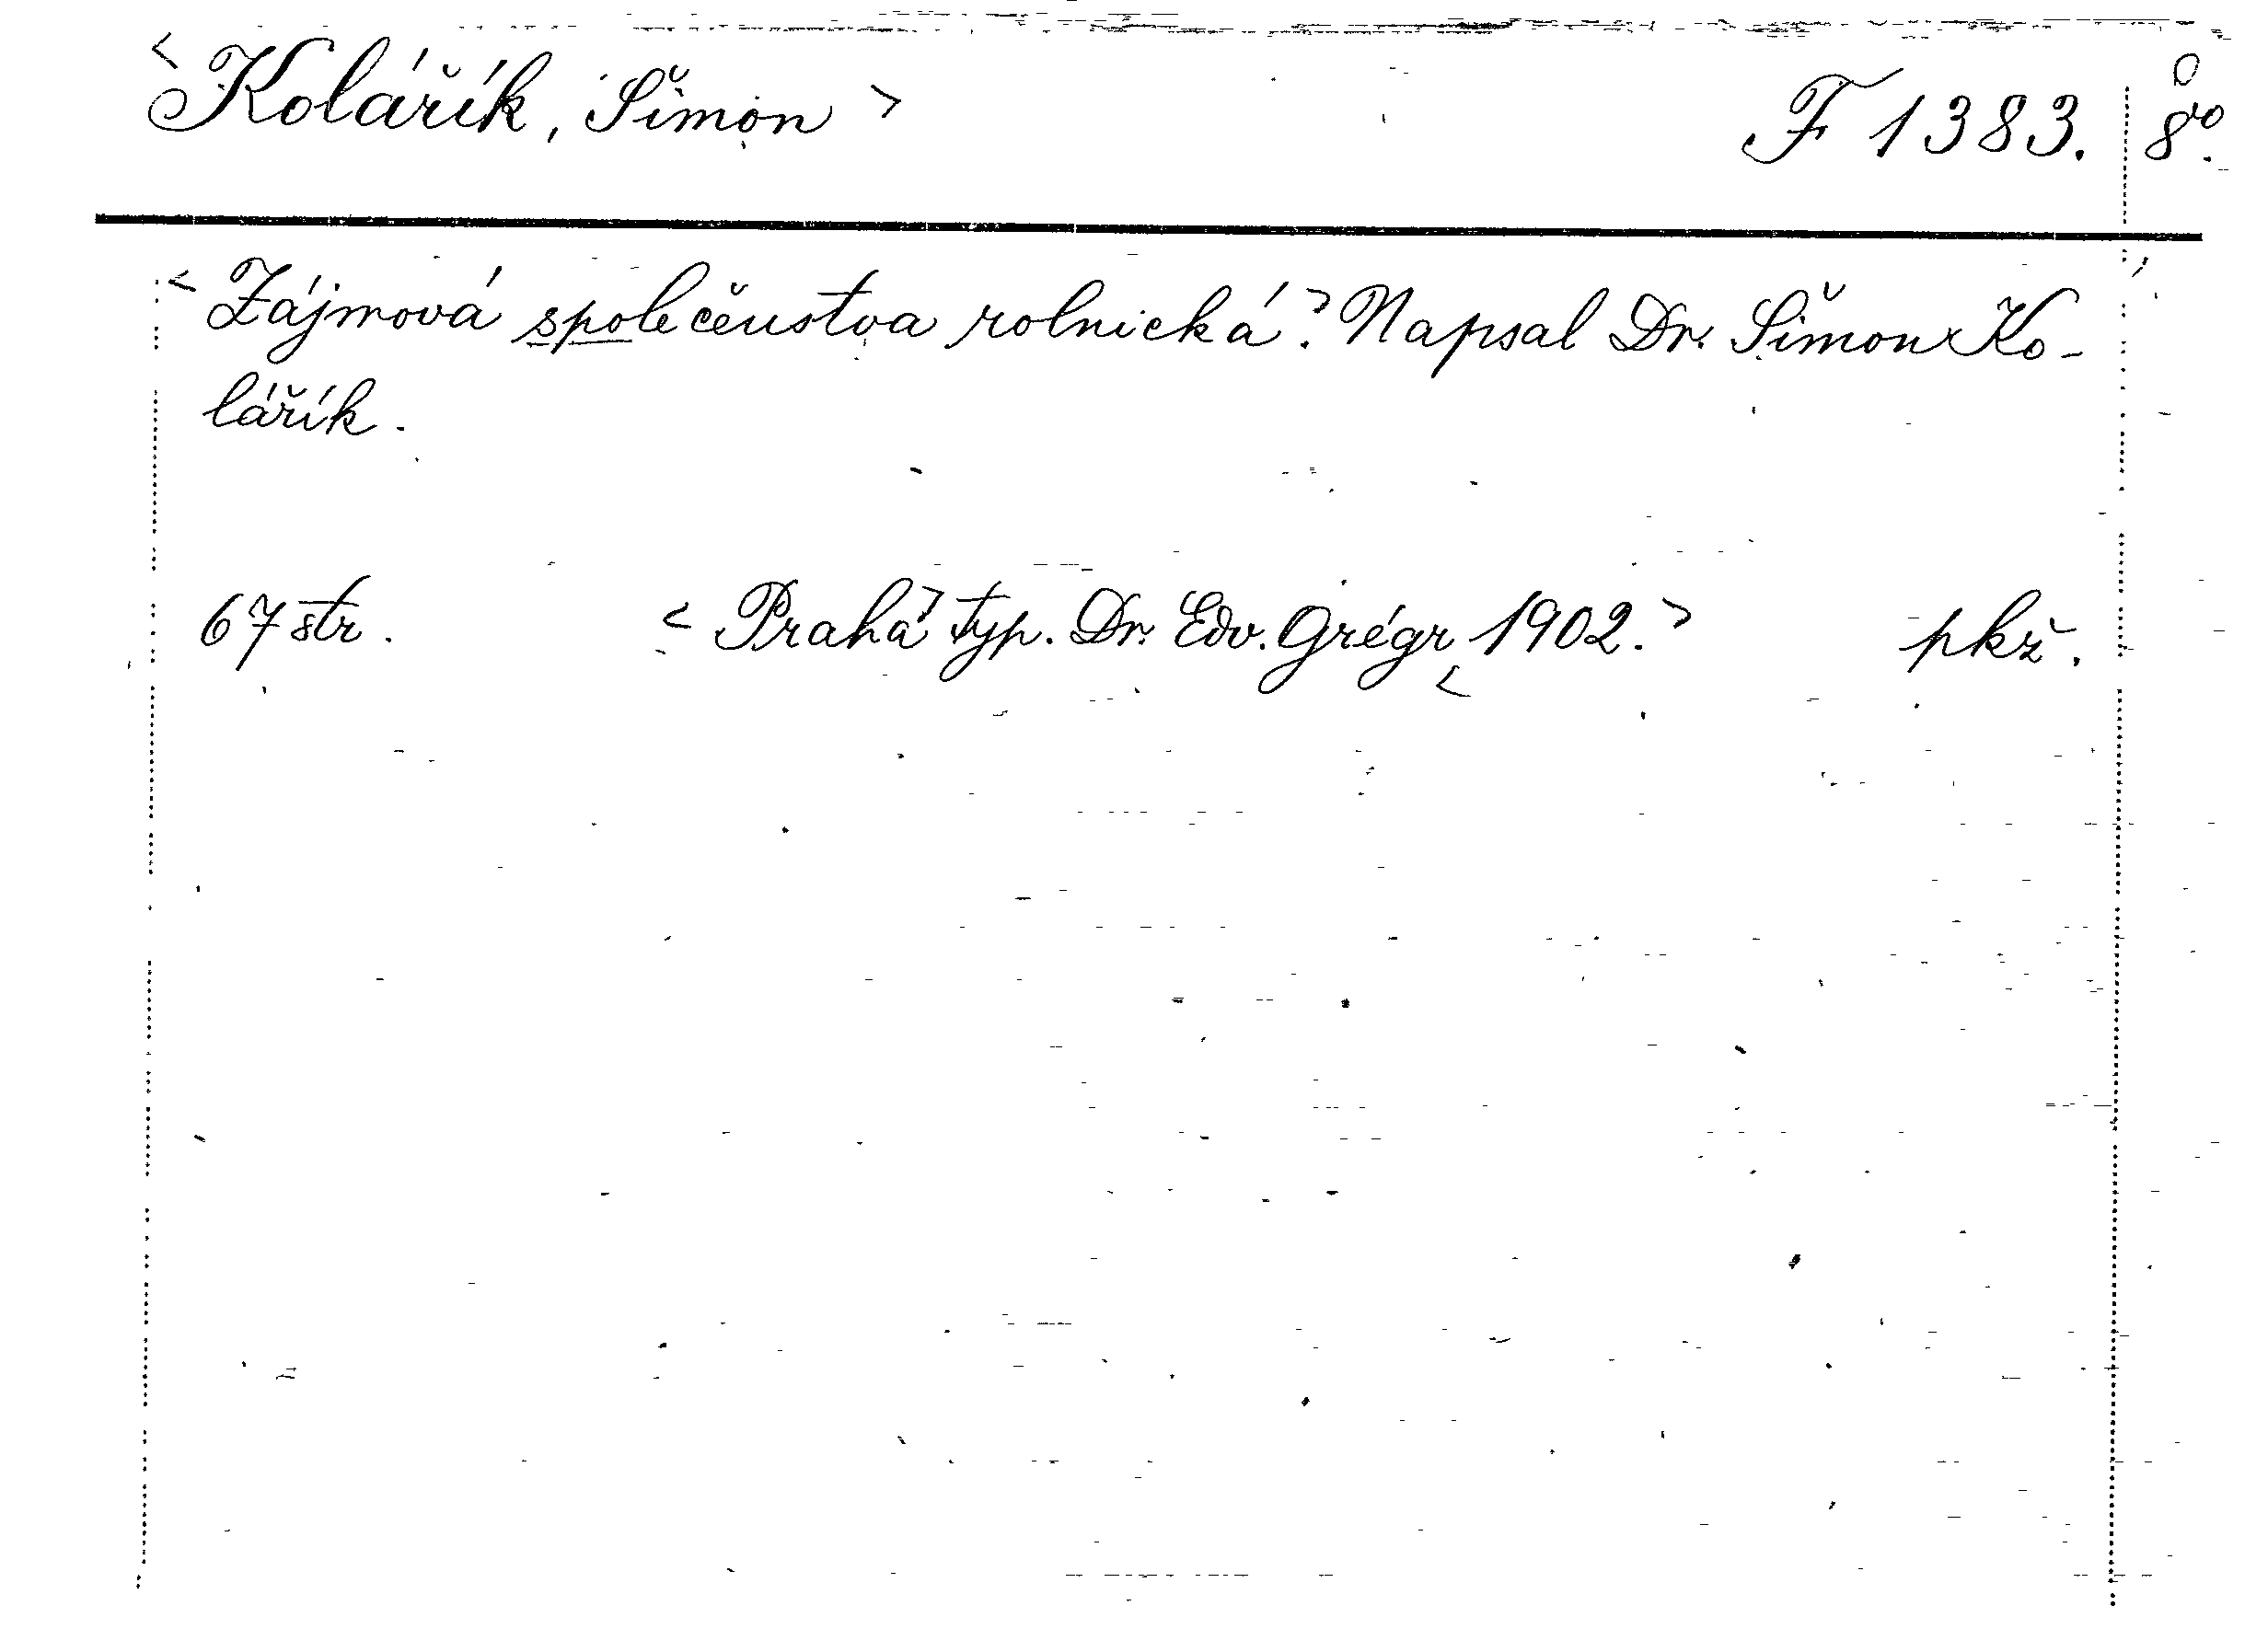 <Kolářík, Šimon> F 1383. 8vo.
<Zájmová společenstva rolnická.> Napsal Dr. Šimon Ko-
lářík.
67 str. <Praha> Typ. Dr. Edv. Grégr <1902.> pkž.